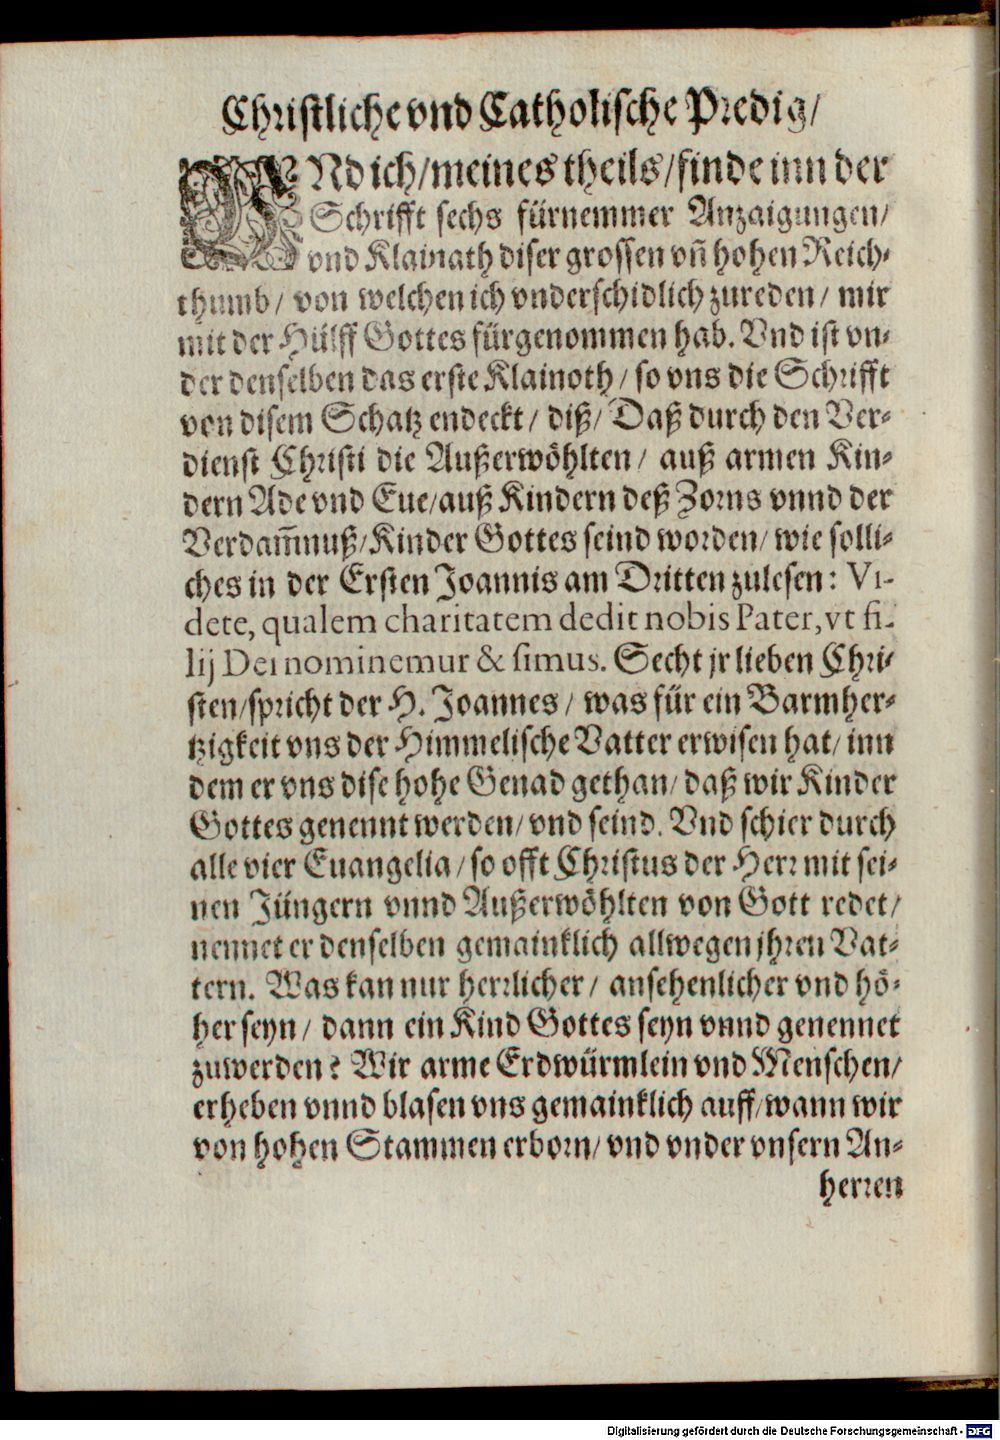 Christliche vnd Catholische Predig/
VNd ich/meines theils/finde inn der
Schrifft sechs fürnemmer Anzaigungen/
vnd Klainath diser grossen vñ hohen Reich-
thumb/ von welchen ich vnderschidlich zureden/ mir
mit der Hülff Gottes fürgenommen hab. Vnd ist vn-
der denselben das erste Klainoth/ so vns die Schrifft
von disem Schatz endeckt/ diß/ Daß durch den Ver-
dienst Christi die Außerwöhlten/ auß armen Kin-
dern Ade vnd Eue/auß Kindern deß Zorns vnnd der
Verdam̃nuß/Kinder Gottes seind worden/ wie solli-
ches in der Ersten Joannis am Dritten zulesen: Vi-
dete, qualem charitatem dedit nobis Pater, vt fi-
lij Dei nominemur & simus. Secht jr lieben Chri-
sten/spricht der H. Joannes/ was für ein Barmher-
tzigkeit vns der Himmelische Vatter erwisen hat/ inn
dem er vns dise hohe Genad gethan/ daß wir Kinder
Gottes genennt werden/ vnd seind. Vnd schier durch
alle vier Euangelia/ so offt Christus der Herr mit sei-
nen Jüngern vnnd Außerwöhlten von Gott redet/
nennet er denselben gemainklich allwegen jhren Vat-
tern. Was kan nur herrlicher/ ansehenlicher vnd hö-
her seyn/ dann ein Kind Gottes seyn vnnd genennet
zuwerden? Wir arme Erdwürmlein vnd Menschen/
erheben vnnd blasen vns gemainklich auff/wann wir
von hohen Stammen erborn/ vnd vnder vnsern An-
herren
Digitalisierung gefördert durch die Deutsche Forschungsgemeinschaft - DFG